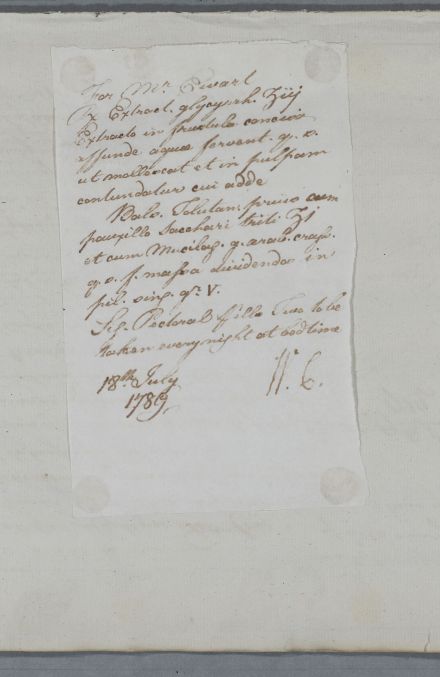 For Mr. Ewart
Rx Extract. glycyrrh. ʒiij
Extracto in frustula conciso
affunde aquae fervent. q. s.
ut mollescat et in pulpam
contundatur cui adde
Bals. Tolutan. prius cum
pauxillo Sacchari triti ʒj
et cum Mucilag. g. arab. crass.
q. s. f. massa dividenda in
pil. sing. gr. V.
Sig. Pectoral pills Two to be
taken every night at bedtime
18th July
1789
W. C.